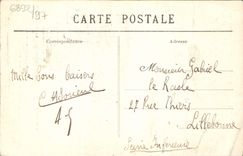 6892/97
CARTE POSTALE
Correspondance
Adresse
Mille bons baisers
Monsieur Gabriel
27 Rue Thiers
Lillebonne
Seine Inférieure